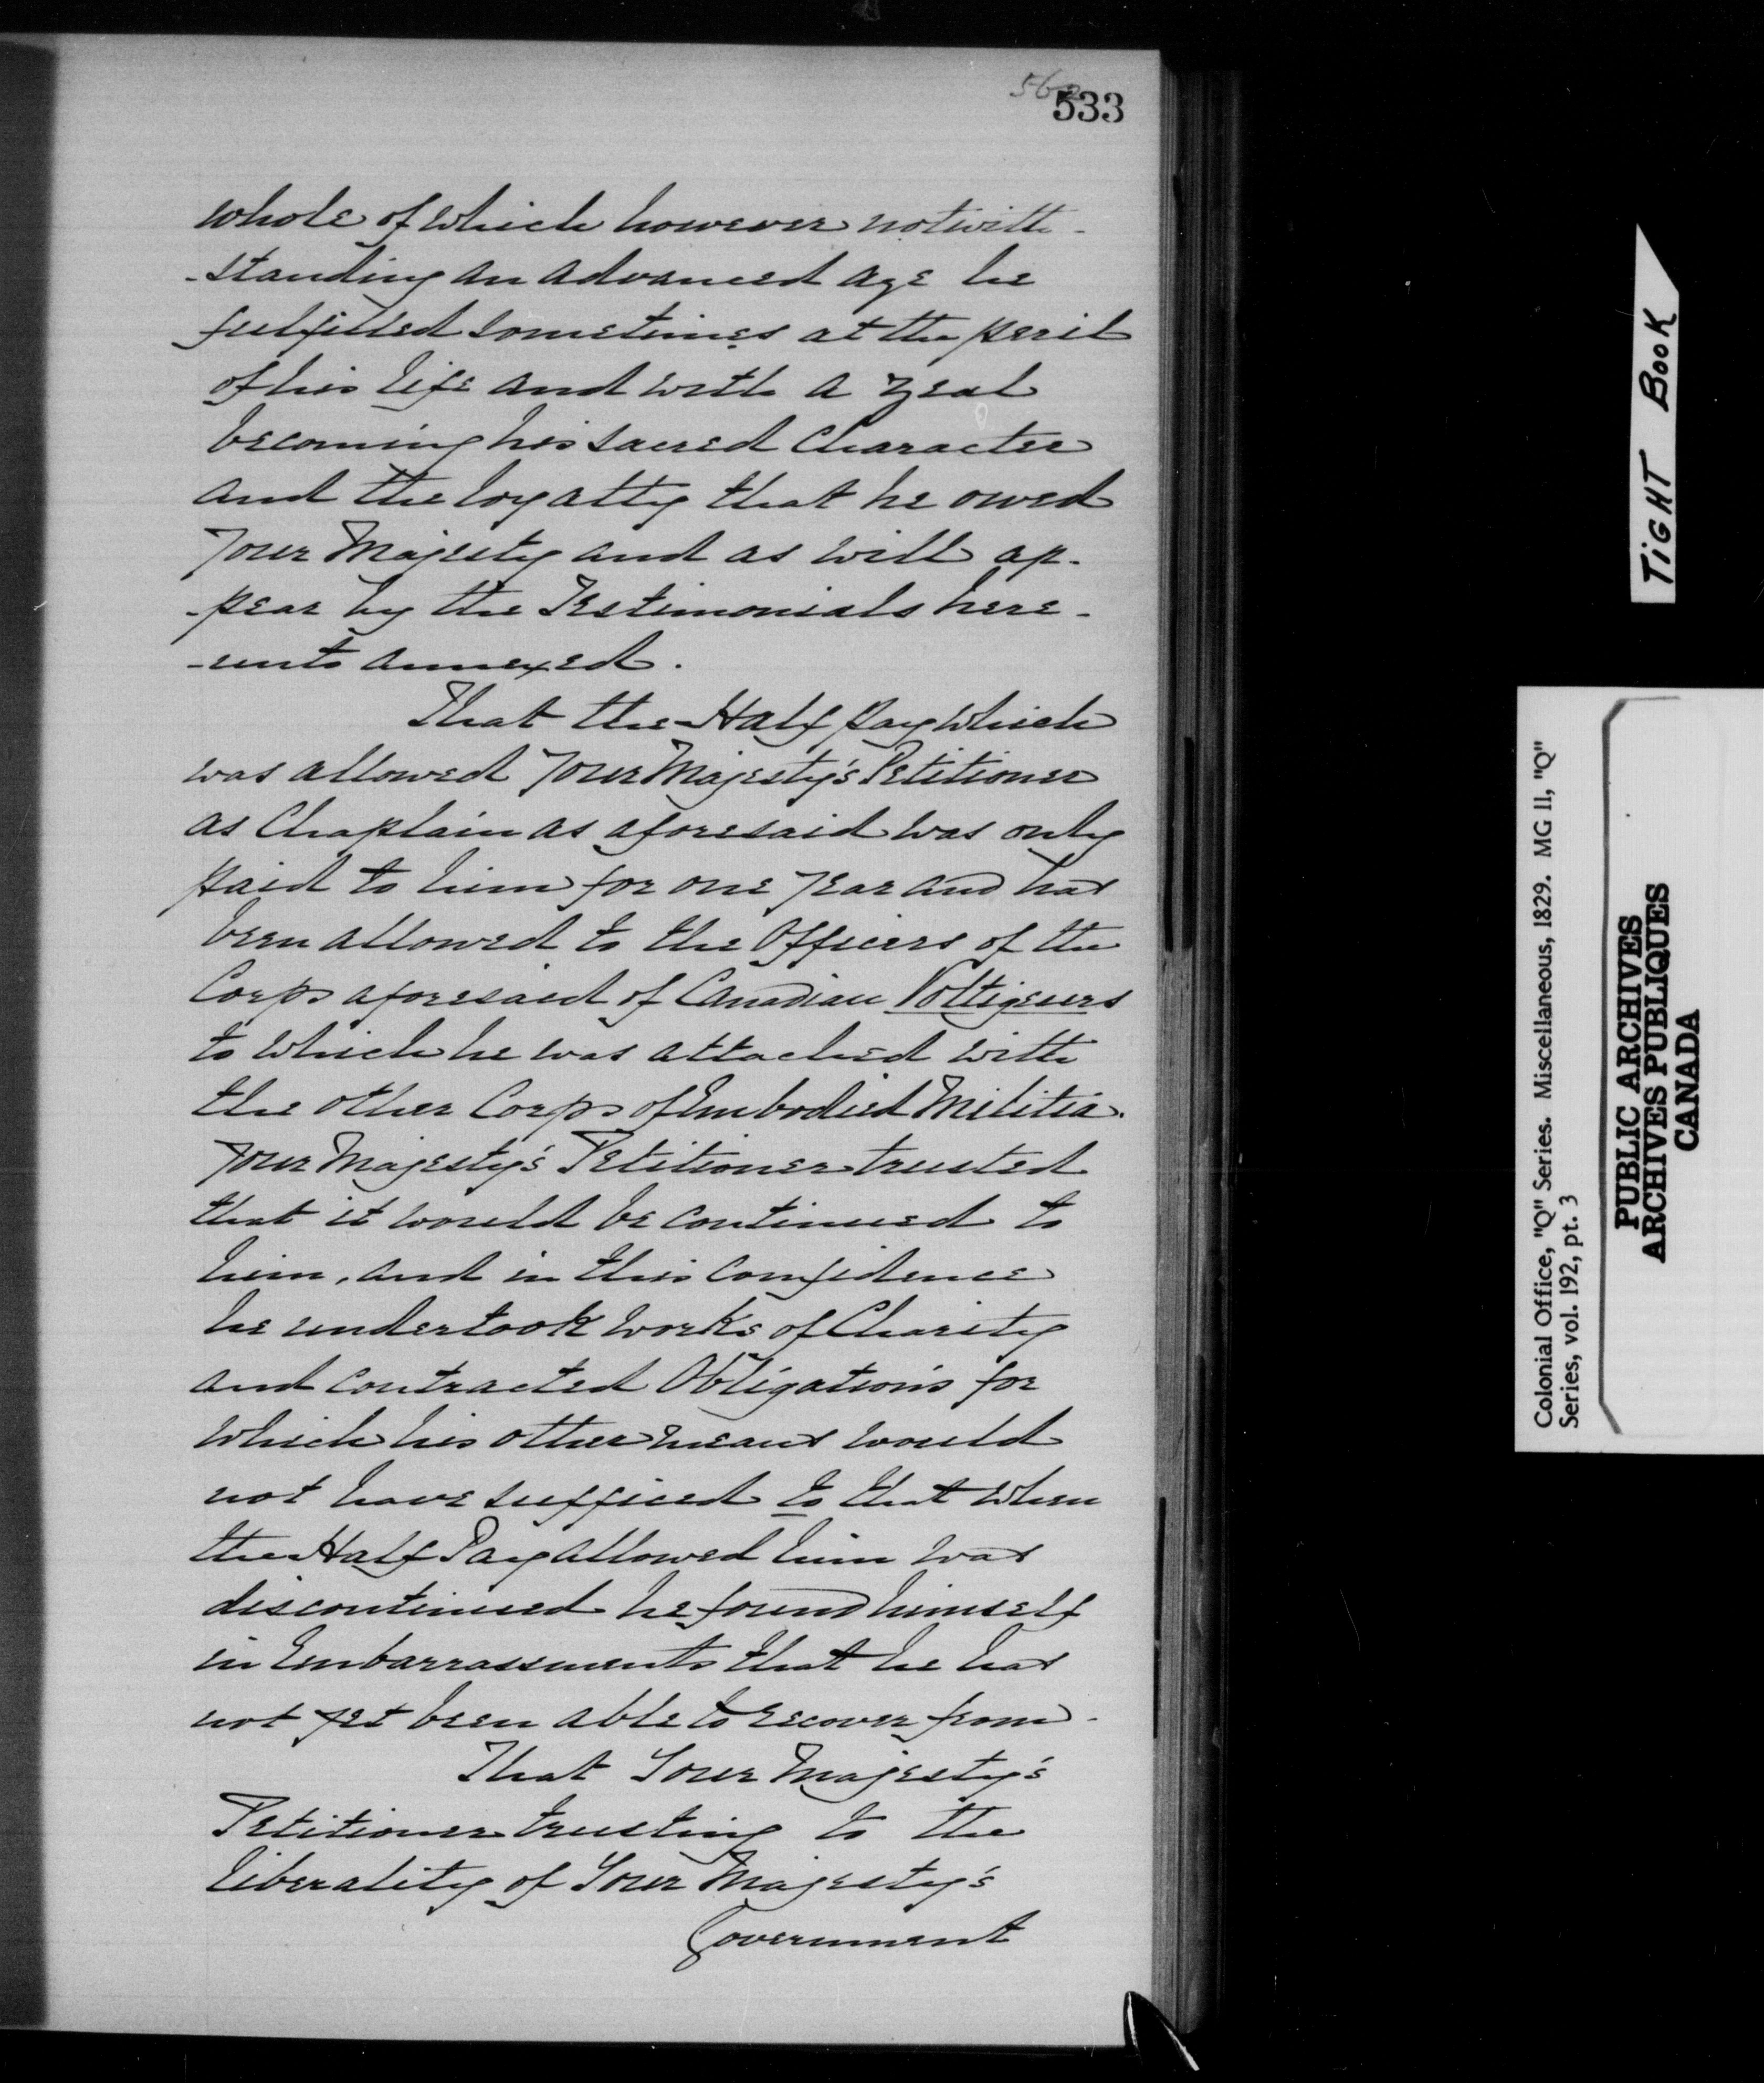 533
whole of which however notwith-
-standing an advanced age he
fulfilled sometimes at the peril
of his life and with a zeal
becoming his sacred Character
and the loyalty that he owed
Your Majesty and as will ap-
-pear by the Testimonials here-
-unto annexed.
That the Half pay which
was allowed Your Majesty's Petitioner
as Chaplain as aforesaid was only
paid to him for one year and has
been allowed to the Officers of the
Corps aforesaid of Canadian Voltigeurs
to which he was attached with
the other Corps of Embodied Militia.
Your Majesty's Petitioner trusted
that it would be continued to
him, and in this confidence
he undertook works of Charity
and contracted Obligations for
which his other means would
not have sufficed to that when
the Half Pay allowed him was
discontinued he found himself
in Embarrassments that he has
not yet been able to recover from.
That Your Majesty's
Petitioner trusting to the
liberality of Your Majesty's
Government
TIGHT BOOK
Colonial Office, "Q" Series. Miscellaneous, 1829. MG 11, "Q"
Series, vol. 192, pt. 3
PUBLIC ARCHIVES
ARCHIVES PUBLIQUES
CANADA